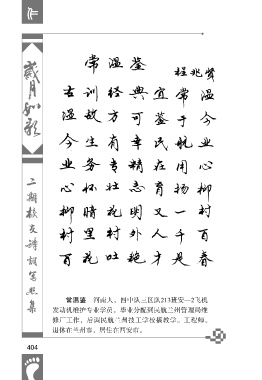 岁月如歌
二期校友诗词
集
常温鉴
程兆贤
古训经典宜常温
温故方可鉴于今
今生有幸民航业
业务专精在用心
心怀壮志育杨柳
柳暗花明又一村
村里村外人千百
百花吐艳才是春
常温鉴 河南人，四中队三区队213班安—2飞机
发动机维护专业学员，毕业分配到民航兰州管理局维
修厂工作，后调民航兰州技工学校搞教学。工程师。
退休在兰州市，居住在西安市。
404